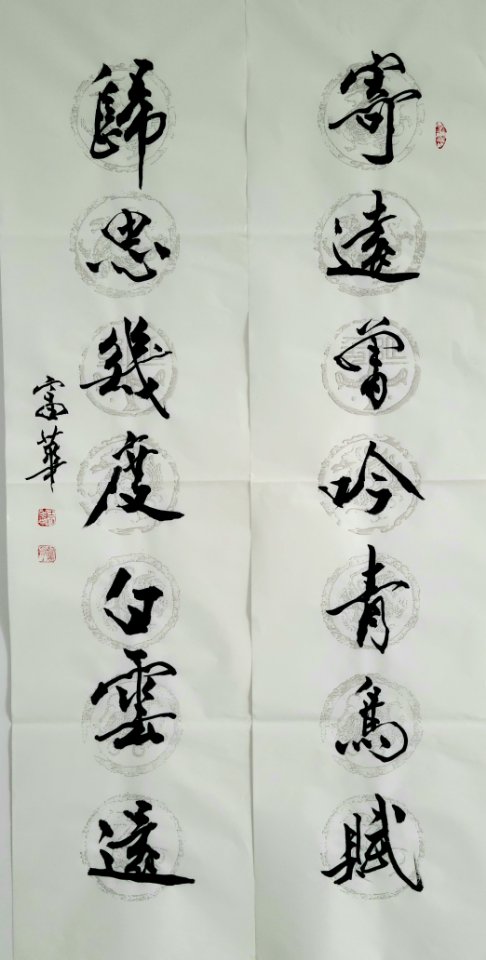 寄遠曾吟青鳥賦
歸思幾度白雲遠
富華